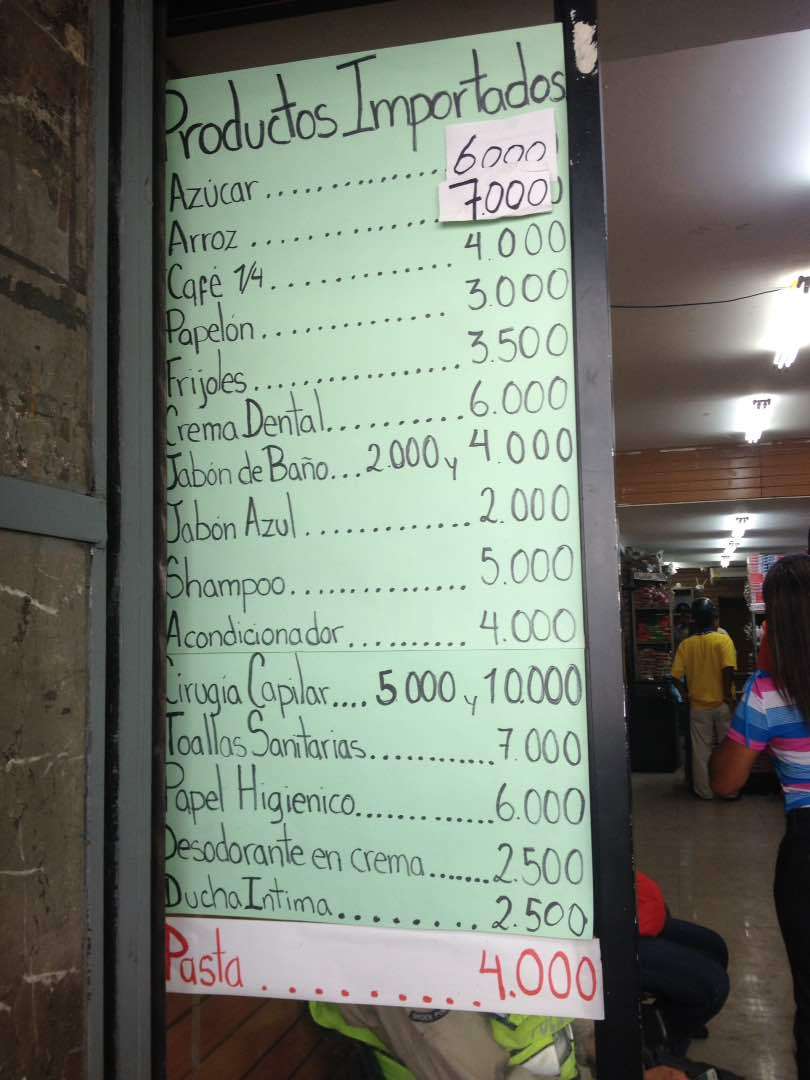 Productos Importados
Azúcar ............. 6000
Arroz ............ 7.000
Café 1/4 ............ 4.000
Papelón ............. 3.000
Frijoles ................ 3.500
Crema Dental .......... 6.000
Jabón de Baño ... 2.000 y 4.000
Jabón Azul ............. 2.000
Shampoo .............. 5.000
Acondicionador .......... 4.000
Cirugía Capilar .... 5000 y 10.000
Toallas Sanitarias ............ 7.000
Papel Higienico ............. 6.000
Desodorante en crema ....... 2.500
Ducha Intima ........ 2.500
Pasta ......... 4.000